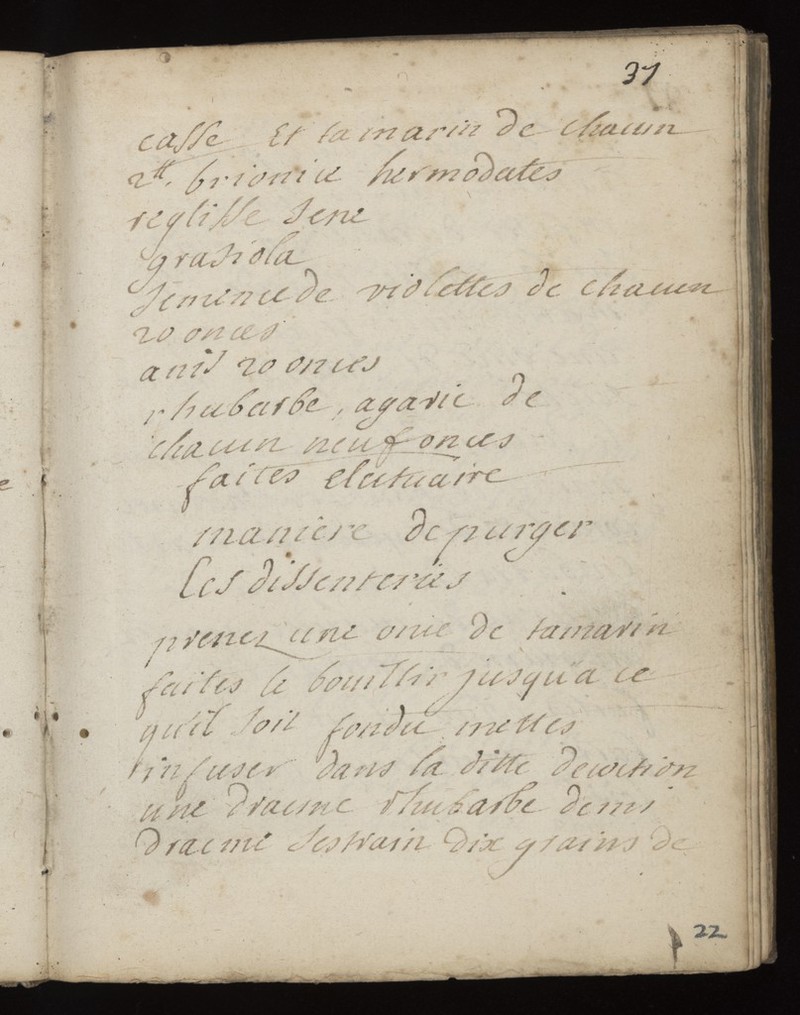 37
casse Et tamarin de chacun
2tt. brionice hermodates
reglisse Sene
grasiola
Semence de violettes de chacun
20 onces
anis 20 onces
rhubarbe, agaric de
chacun neuf onces
faites electuaire
maniere de purger
Les dissenteries
prenez une once de tamarin
faites le bouillir jusqu'a ce
qu'il soit fondu mettes
infuser dans la ditte decoction
une dracme rhubarbe demi
dracme dix grains de
22